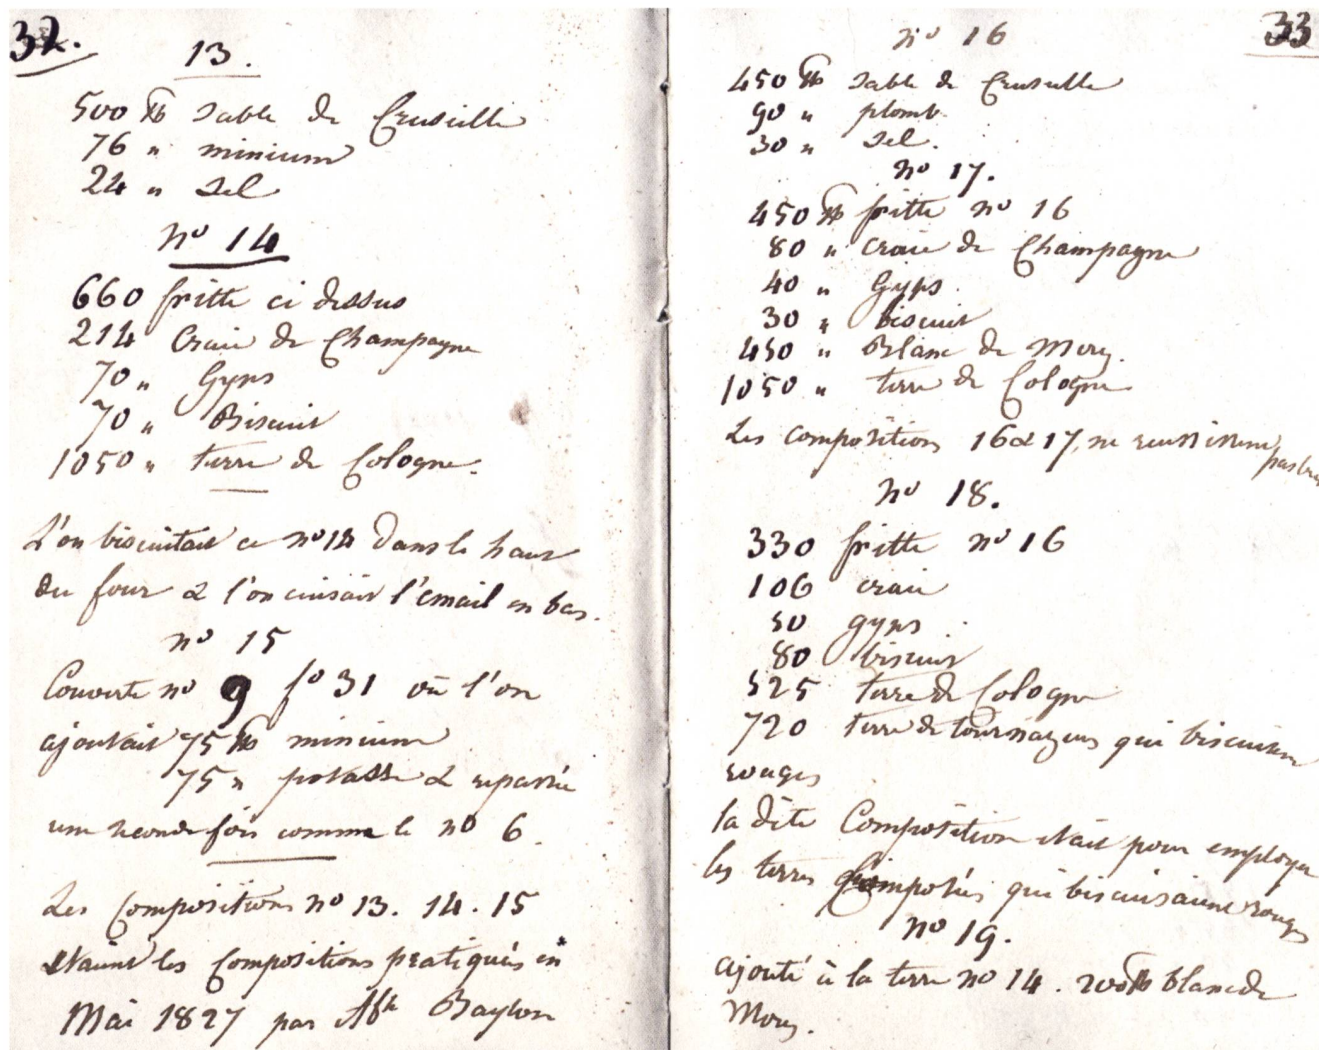 32.
13.
500 ℔ Sable de Cruseille
76 " minium
24 " Sel
nº 14
660 fritte ci dessus
214 Craie de Champagne
70 " Gyps
70 " Biscuit
1050 " terre de Cologne.
L'on biscuitait ce nº 14 dans le haut
du four & l'on cuisait l'émail en bas.
nº 15
Couverte nº 9 fº 31 où l'on
ajoutait 75 ℔ minium
75 " potasse & repassée
une seconde fois comme le nº 6.
Les Compositions nº 13. 14. 15
étaient les compositions pratiqués en
Mai 1827 par Baylon
33
nº 16
450 ℔ Sable de Cruseille
90 " plomb
30 " Sel.
nº 17.
450 ℔ fritte nº 16
80 " craie de Champagne
40 " Gyps.
30 " biscuit
450 " Blanc de Mory.
1050 " terre de Cologne
Les compositions 16 & 17, ne reussissent pas
nº 18.
330 fritte nº 16
106 craie
50 gyps.
80 biscuit
525 terre de Cologne
720 terre de qui biscuisent
rouges
la dite Composition était pour employer
les terres composées qui biscuisaient rouges
nº 19.
ajouté à la terre nº 14. 200 ℔ blanc de
Mory.